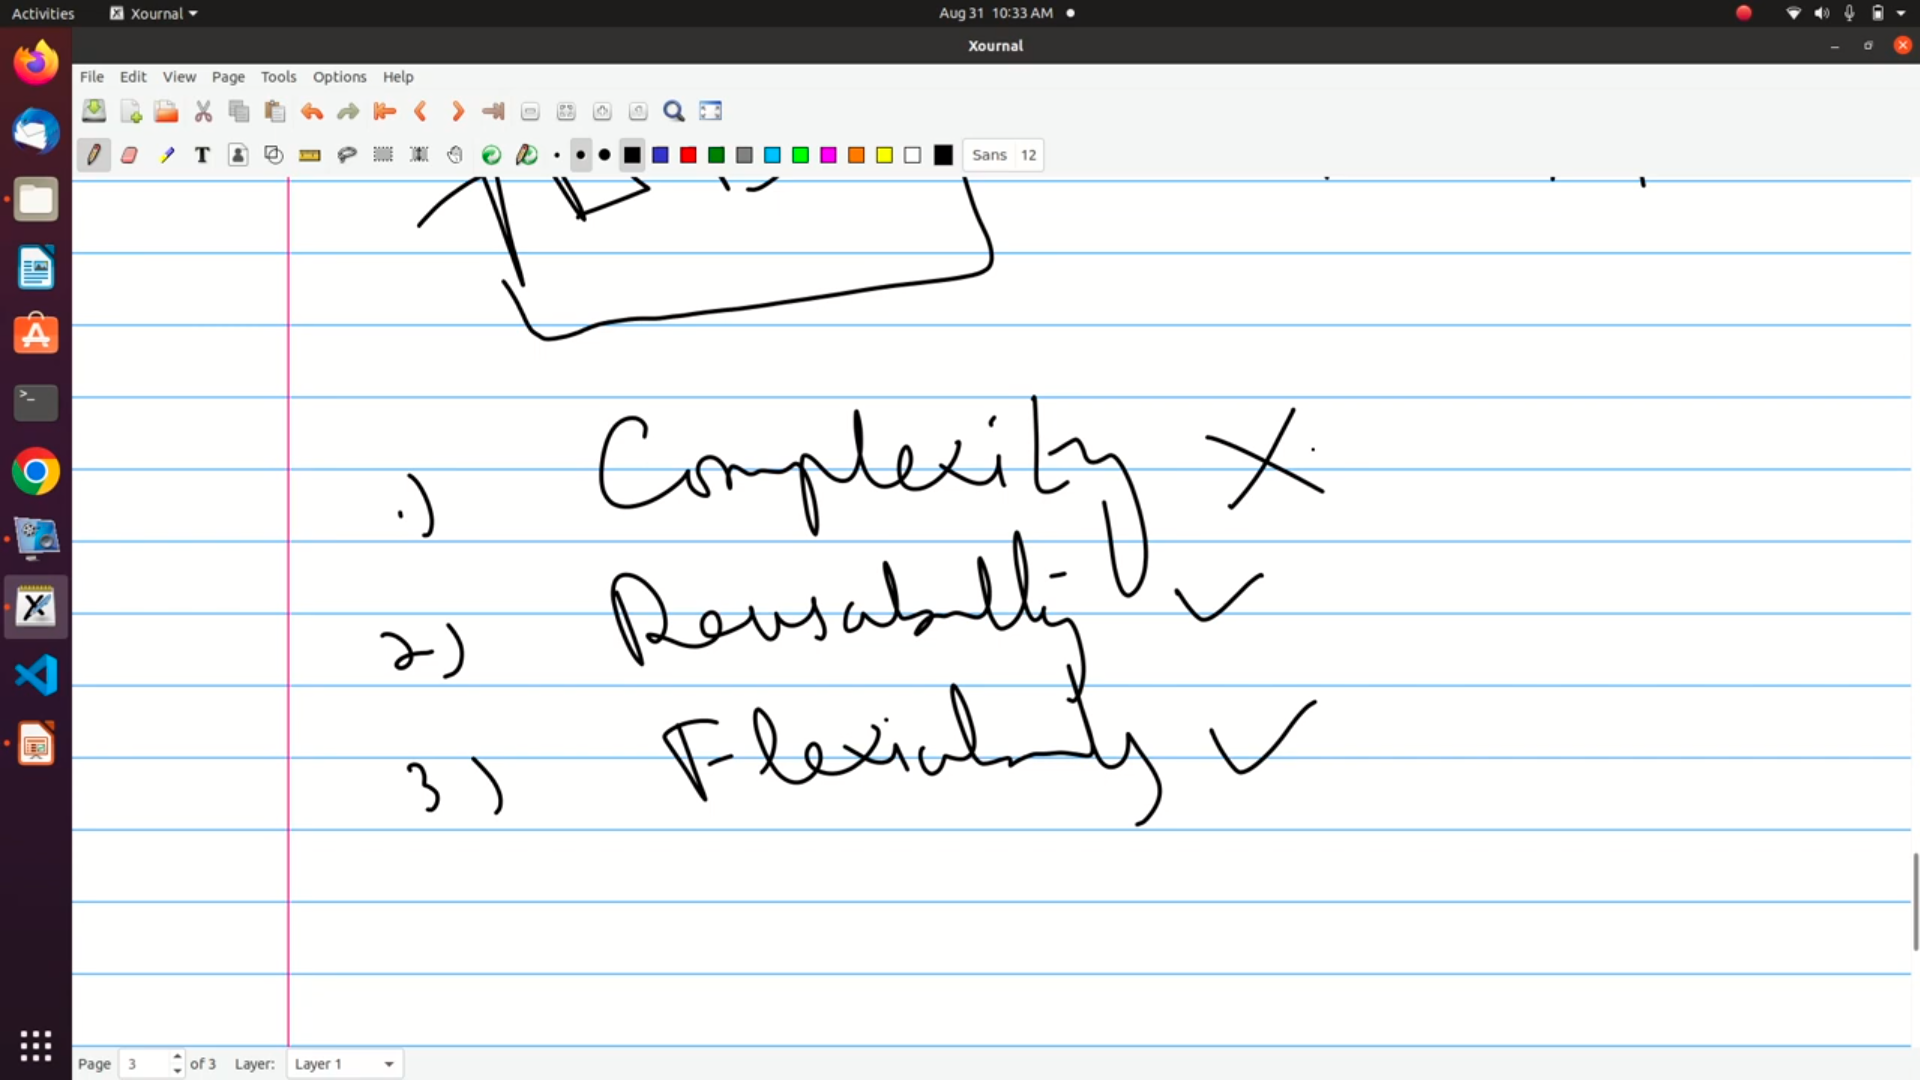 Activities Xournal Aug 31 10:33 AM
Xournal
File Edit View Page Tools Options Help
Sans 12
1) Complexity X
2) Reusability ✓
3) Flexiability ✓
Page 3 of 3 Layer: Layer 1